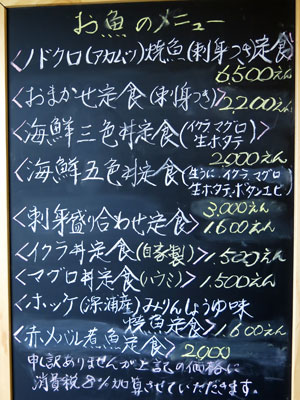 お魚のメニュー
<ノドクロ(アカムツ)焼魚(刺身つき)定食
6,500えん
<おまかせ定食(刺身つき)>2,200えん
<海鮮三色丼定食(イクラマグロ 生ホタテ)>
2,000えん
<海鮮五色丼定食(生うに、イクラマグロ 生ホタテ・ボタンエビ
3,000えん
<刺身盛り合わせ定食>1,600えん
<イクラ丼定食(自家製)>1,500えん
<マグロ丼定食(ハワミ)>1,500えん
<ホッケ(深浦産)みりんしょうゆ味
焼魚定食>1,600えん
<赤メバル煮魚定食>2,000
申訳ありませんが上記の価格に
消費税8%加算させていただきます。